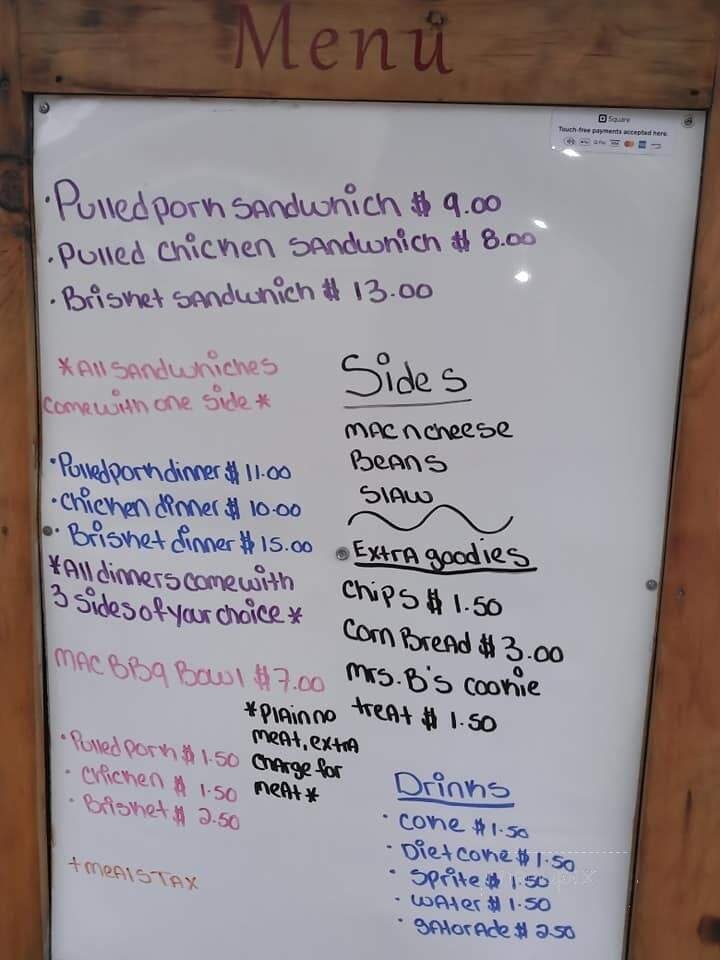 Menu
Square
Touch-free payments accepted here.
·Pulled pork sandwhich $ 9.00
·Pulled chicken sandwhich $ 8.00
·Brisket sandwhich $ 13.00
*All sandwhiches
come with one side*
·Pulled pork dinner $ 11.00
·chicken dinner $ 10.00
·Brisket dinner $ 15.00
*All dinners come with
3 sides of your choice*
MAC BBQ Bowl $7.00
*Plain no
meat, extra
charge for
meat*
·Pulled pork $ 1.50
·chicken $ 1.50
·Brisket $ 2.50
+meals TAX
Sides
MAC n cheese
BEANS
Slaw
Extra goodies
chips $ 1.50
Corn Bread $ 3.00
Mrs. B's cookie
treat $ 1.50
Drinks
·coke $ 1.50
·Diet coke $ 1.50
·Sprite $ 1.50
·water $ 1.50
·gatorade $ 2.50